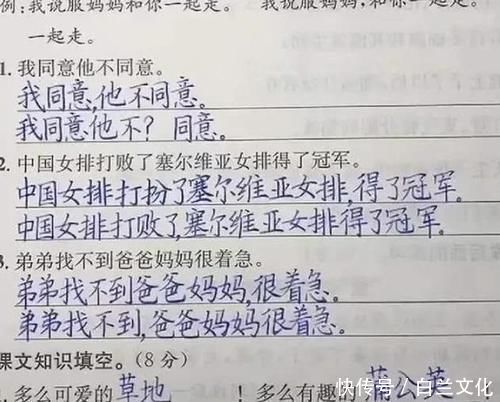 例:我说服妈妈和你一起走。 我说服妈妈,和你一
一起走。
1. 我同意他不同意。
我同意,他不同意。
我同意他不?同意。
2. 中国女排打败了塞尔维亚女排得了冠军。
中国女排打扮了塞尔维亚女排,得了冠军。
中国女排打败了,塞尔维亚女排得了冠军。
3. 弟弟找不到爸爸妈妈很着急。
弟弟找不到爸爸妈妈,很着急。
弟弟找不到,爸爸妈妈很着急。
课文知识填空。(8分)
1. 多么可爱的草地 !多么有趣的蒲公英
快传号/白兰文化